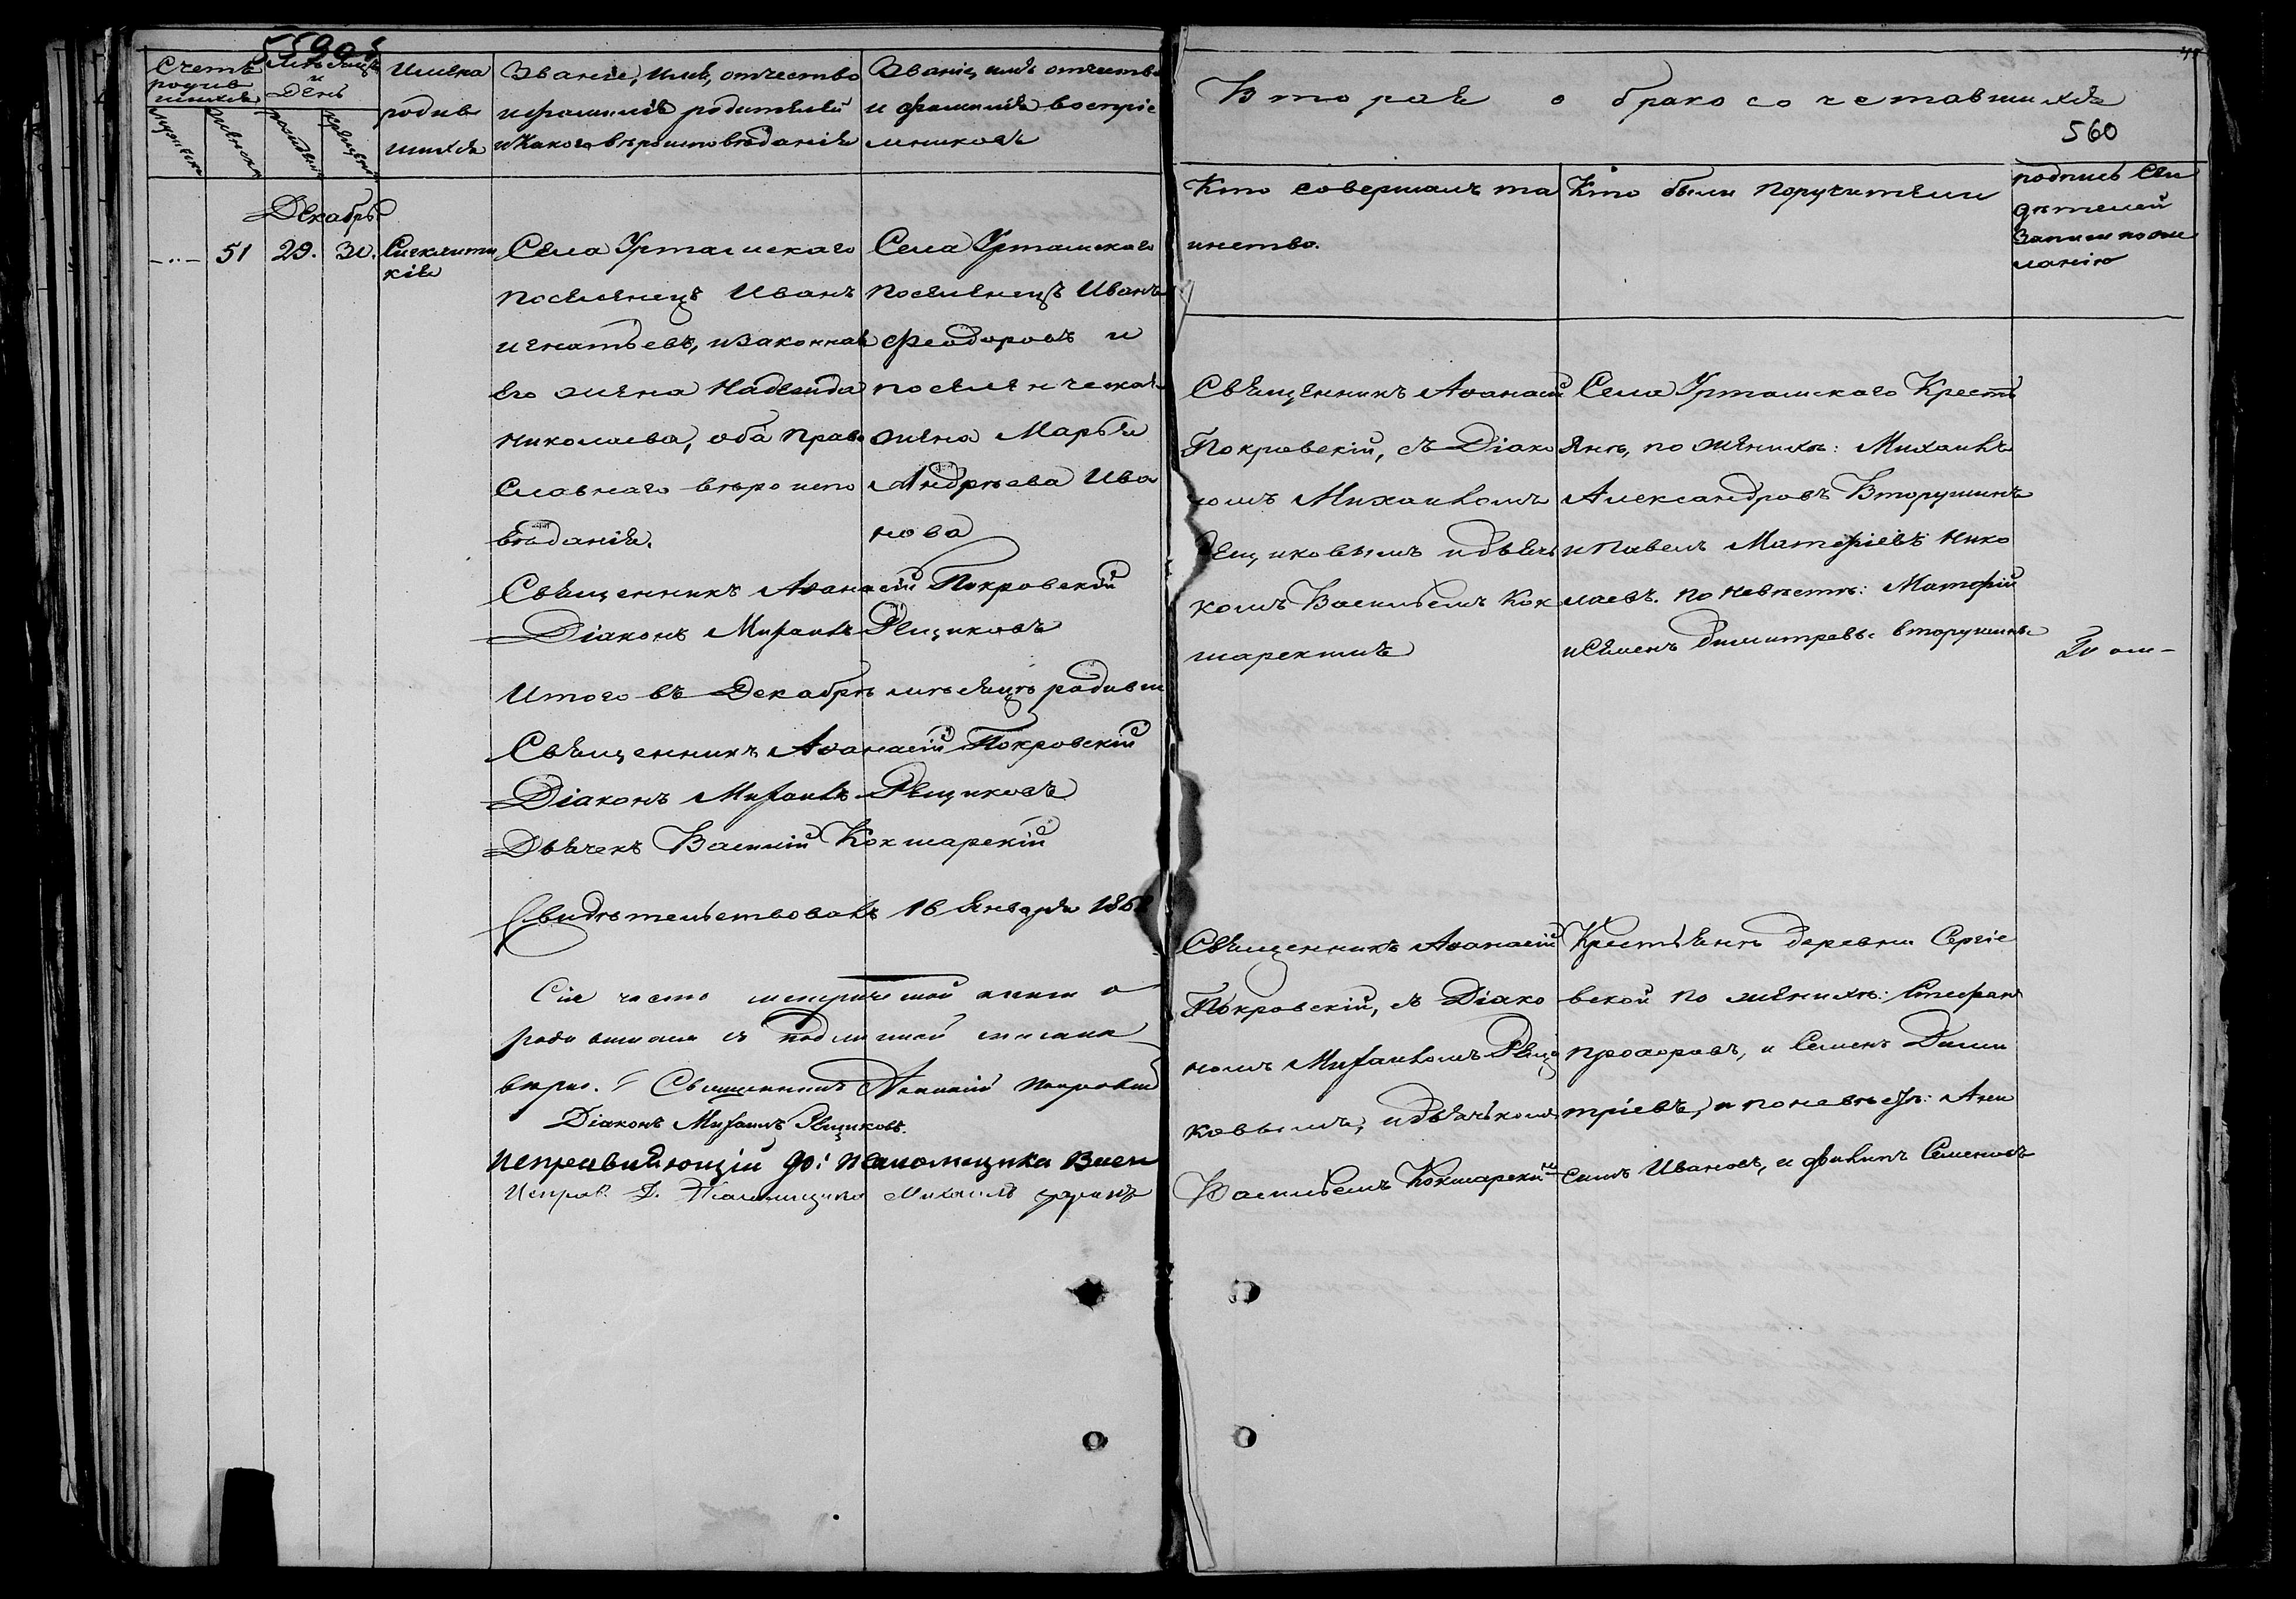 559об
Счетъ родив шихся
мужеска
женска
Мѣсяцъ и День
рожденія
крещенія
Имена родив шихся
Званіе, имя, отчество и фамилія родителей и какого вѣроисповѣданія
Званіе, имя отчество и фамилія воспріе мниковъ
Декабрь
51 29. 30. Синклити кія
Села Уртамскаго
поселенецъ Иванъ
игнатьевъ, и законная
его жена Надежда
николаева, оба право
славнаго вѣроиспо
вѣданія.
Села Уртамскаго
поселенецъ Иванъ
Феодоровъ и
поселенческая
жена Марья
Андрѣева Ива
нова
Священникъ Аѳанасій Покровскій
Діаконъ Михаилъ Рещиковъ
Итого въ Декабрѣ мѣсяцѣ родивш
Священникъ Аѳанасій Покровскій
Діаконъ Михаилъ Рещиковъ
Дьячекъ Василій Кокшарскій
Свидѣтельствовалъ 16 Января 186
Сія часть метрической книги о
родившихся съ подлинной списана
вѣрно. Священникъ Аѳанасій Покровскій
Діаконъ Михаилъ Рещиковъ.
Исправляющій до: Паломщика Васи
Исправ. Д. Паломщика Михаилъ
Вторая о бракосочетавшихся
560
Кто совершалъ та инство.
Кто были поручители
подпись Сви дѣтелей записи по же ланію
Священникъ Аѳанасій
Покровскій, съ Діако
номъ Михаиломъ
Рещиковымъ и дьяч
комъ Васильемъ Кок
шарскимъ
Села Уртамскаго Кресть
яне, по женихѣ: Михаилъ
Александровъ Вторушинъ
и Павелъ Матфіевъ Нико
лаевъ. по невѣстѣ: Матфій
и Семенъ Димитревы Вторушины
Священникъ Аѳанасій
Покровскій, съ Діако
номъ Михаиломъ Рещи
ковымъ, и дьячькомъ
Васильемъ Кокшарскимъ
Крестьяне деревни Сергіе
вской по женихѣ: Стефанъ
Прохоровъ, и Семенъ Дими
тріевъ, и по невѣстѣ: Ани
симъ Ивановъ, и Филипъ Семеновъ